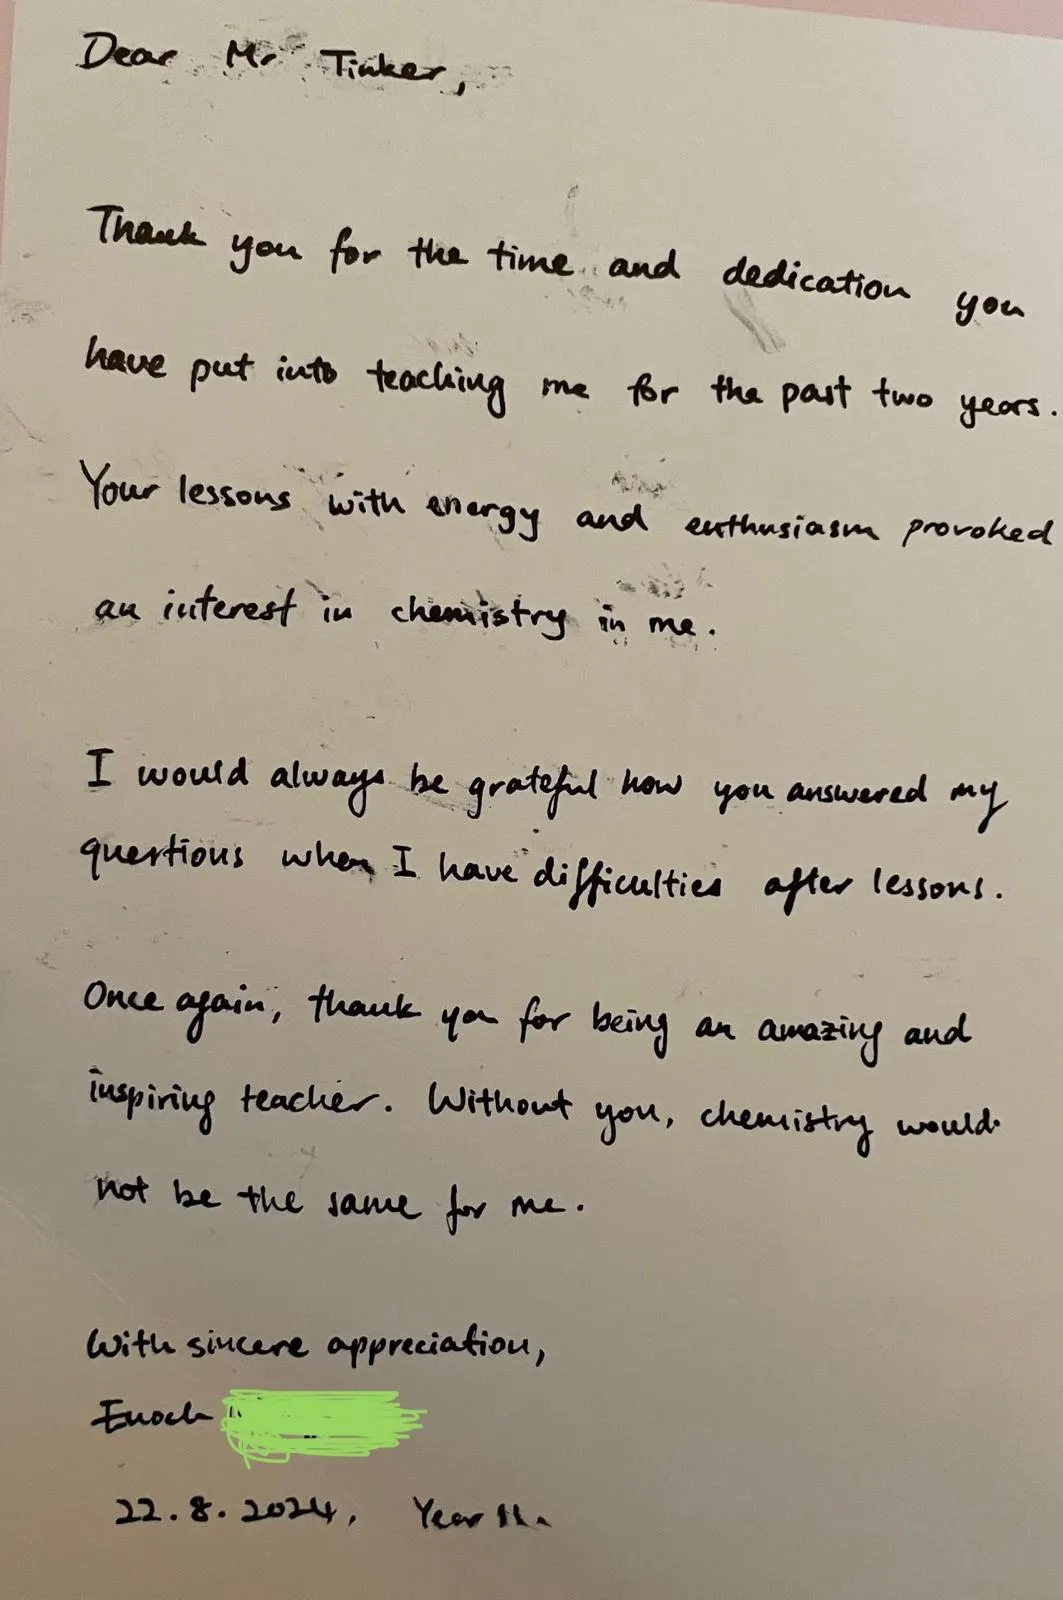 Dear Mr Tinker,
Thank you for the time and dedication you
have put into teaching me for the past two years.
Your lessons with energy and enthusiasm provoked
an interest in chemistry in me.
I would always be grateful how you answered my
questions when I have difficulties after lessons.
Once again, thank you for being an amazing and
inspiring teacher. Without you, chemistry would
not be the same for me.
With sincere appreciation,
Enoch
22.8.2024, Year 11.